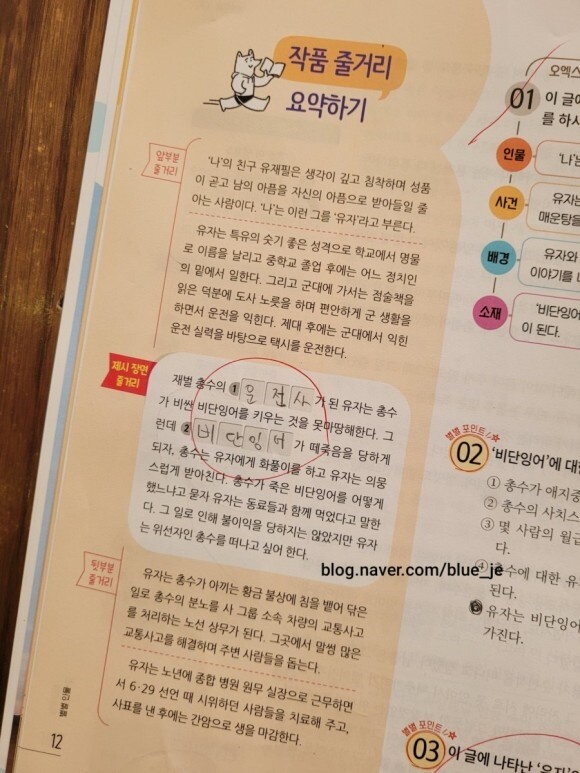 작품 줄거리
요약하기
앞부분
줄거리
'나'의 친구 유재필은 생각이 깊고 침착하며 성품
이 곧고 남의 아픔을 자신의 아픔으로 받아들일 줄
아는 사람이다. '나'는 이런 그를 '유자'라고 부른다.
유자는 특유의 숫기 좋은 성격으로 학교에서 명물
로 이름을 날리고 중학교 졸업 후에는 어느 정치인
의 밑에서 일한다. 그리고 군대에 가서는 점술책을
읽은 덕분에 도사 노릇을 하며 편안하게 군 생활을
하면서 운전을 익힌다. 제대 후에는 군대에서 익힌
운전 실력을 바탕으로 택시를 운전한다.
제시 장면
줄거리
재벌 총수의 1 운 전 사 가 된 유자는 총수
가 비싼 비단잉어를 키우는 것을 못마땅해한다. 그
런데 2 비 단 잉 어 가 떼죽음을 당하게
되자, 총수는 유자에게 화풀이를 하고 유자는 의뭉
스럽게 받아친다. 총수가 죽은 비단잉어를 어떻게
했느냐고 묻자 유자는 동료들과 함께 먹었다고 말한
다. 그 일로 인해 불이익을 당하지는 않았지만 유자
는 위선자인 총수를 떠나고 싶어 한다.
blog.naver.com/blue_je
뒷부분
줄거리
유자는 총수가 아끼는 황금 불상에 침을 뱉어 닦은
일로 총수의 분노를 사 그룹 소속 차량의 교통사고
를 처리하는 노선 상무가 된다. 그곳에서 말썽 많은
교통사고를 해결하며 주변 사람들을 돕는다.
유자는 노년에 종합 병원 원무 실장으로 근무하면
서 6·29 선언 때 시위하던 사람들을 치료해 주고,
사표를 낸 후에는 간암으로 생을 마감한다.
12
오엑스
01 이 글에
를 하시
인물 '나'는
사건 유자는
매운탕을
배경 유자와
이야기를 나
소재 '비단잉어
이 된다.
별별 포인트
02 '비단잉어'에 대한
① 총수가 애지중
② 총수의 사치스
③ 몇 사람의 월급
다.
④ 총수에 대한 유
된다.
유자는 비단잉어
가진다.
별별 포인트
03 이 글에 나타난 '유자'의